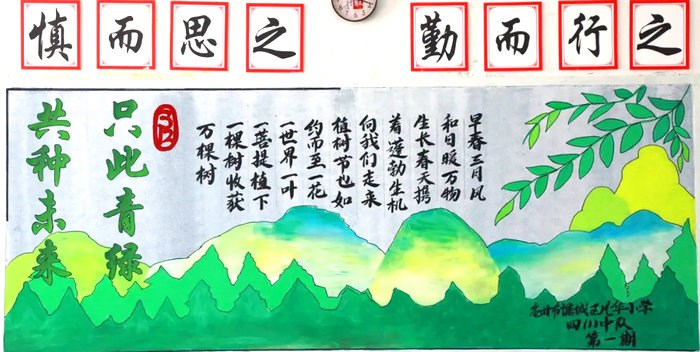 慎而思之
勤而行之
早春三月风
和日暖万物
生长春天携
着蓬勃生机
向我们走来
植树节也如
约而至一花
一世界一叶
一菩提植下
一棵树收获
万棵树
只此青绿
共种未来
小学
四(1)中队
第一期